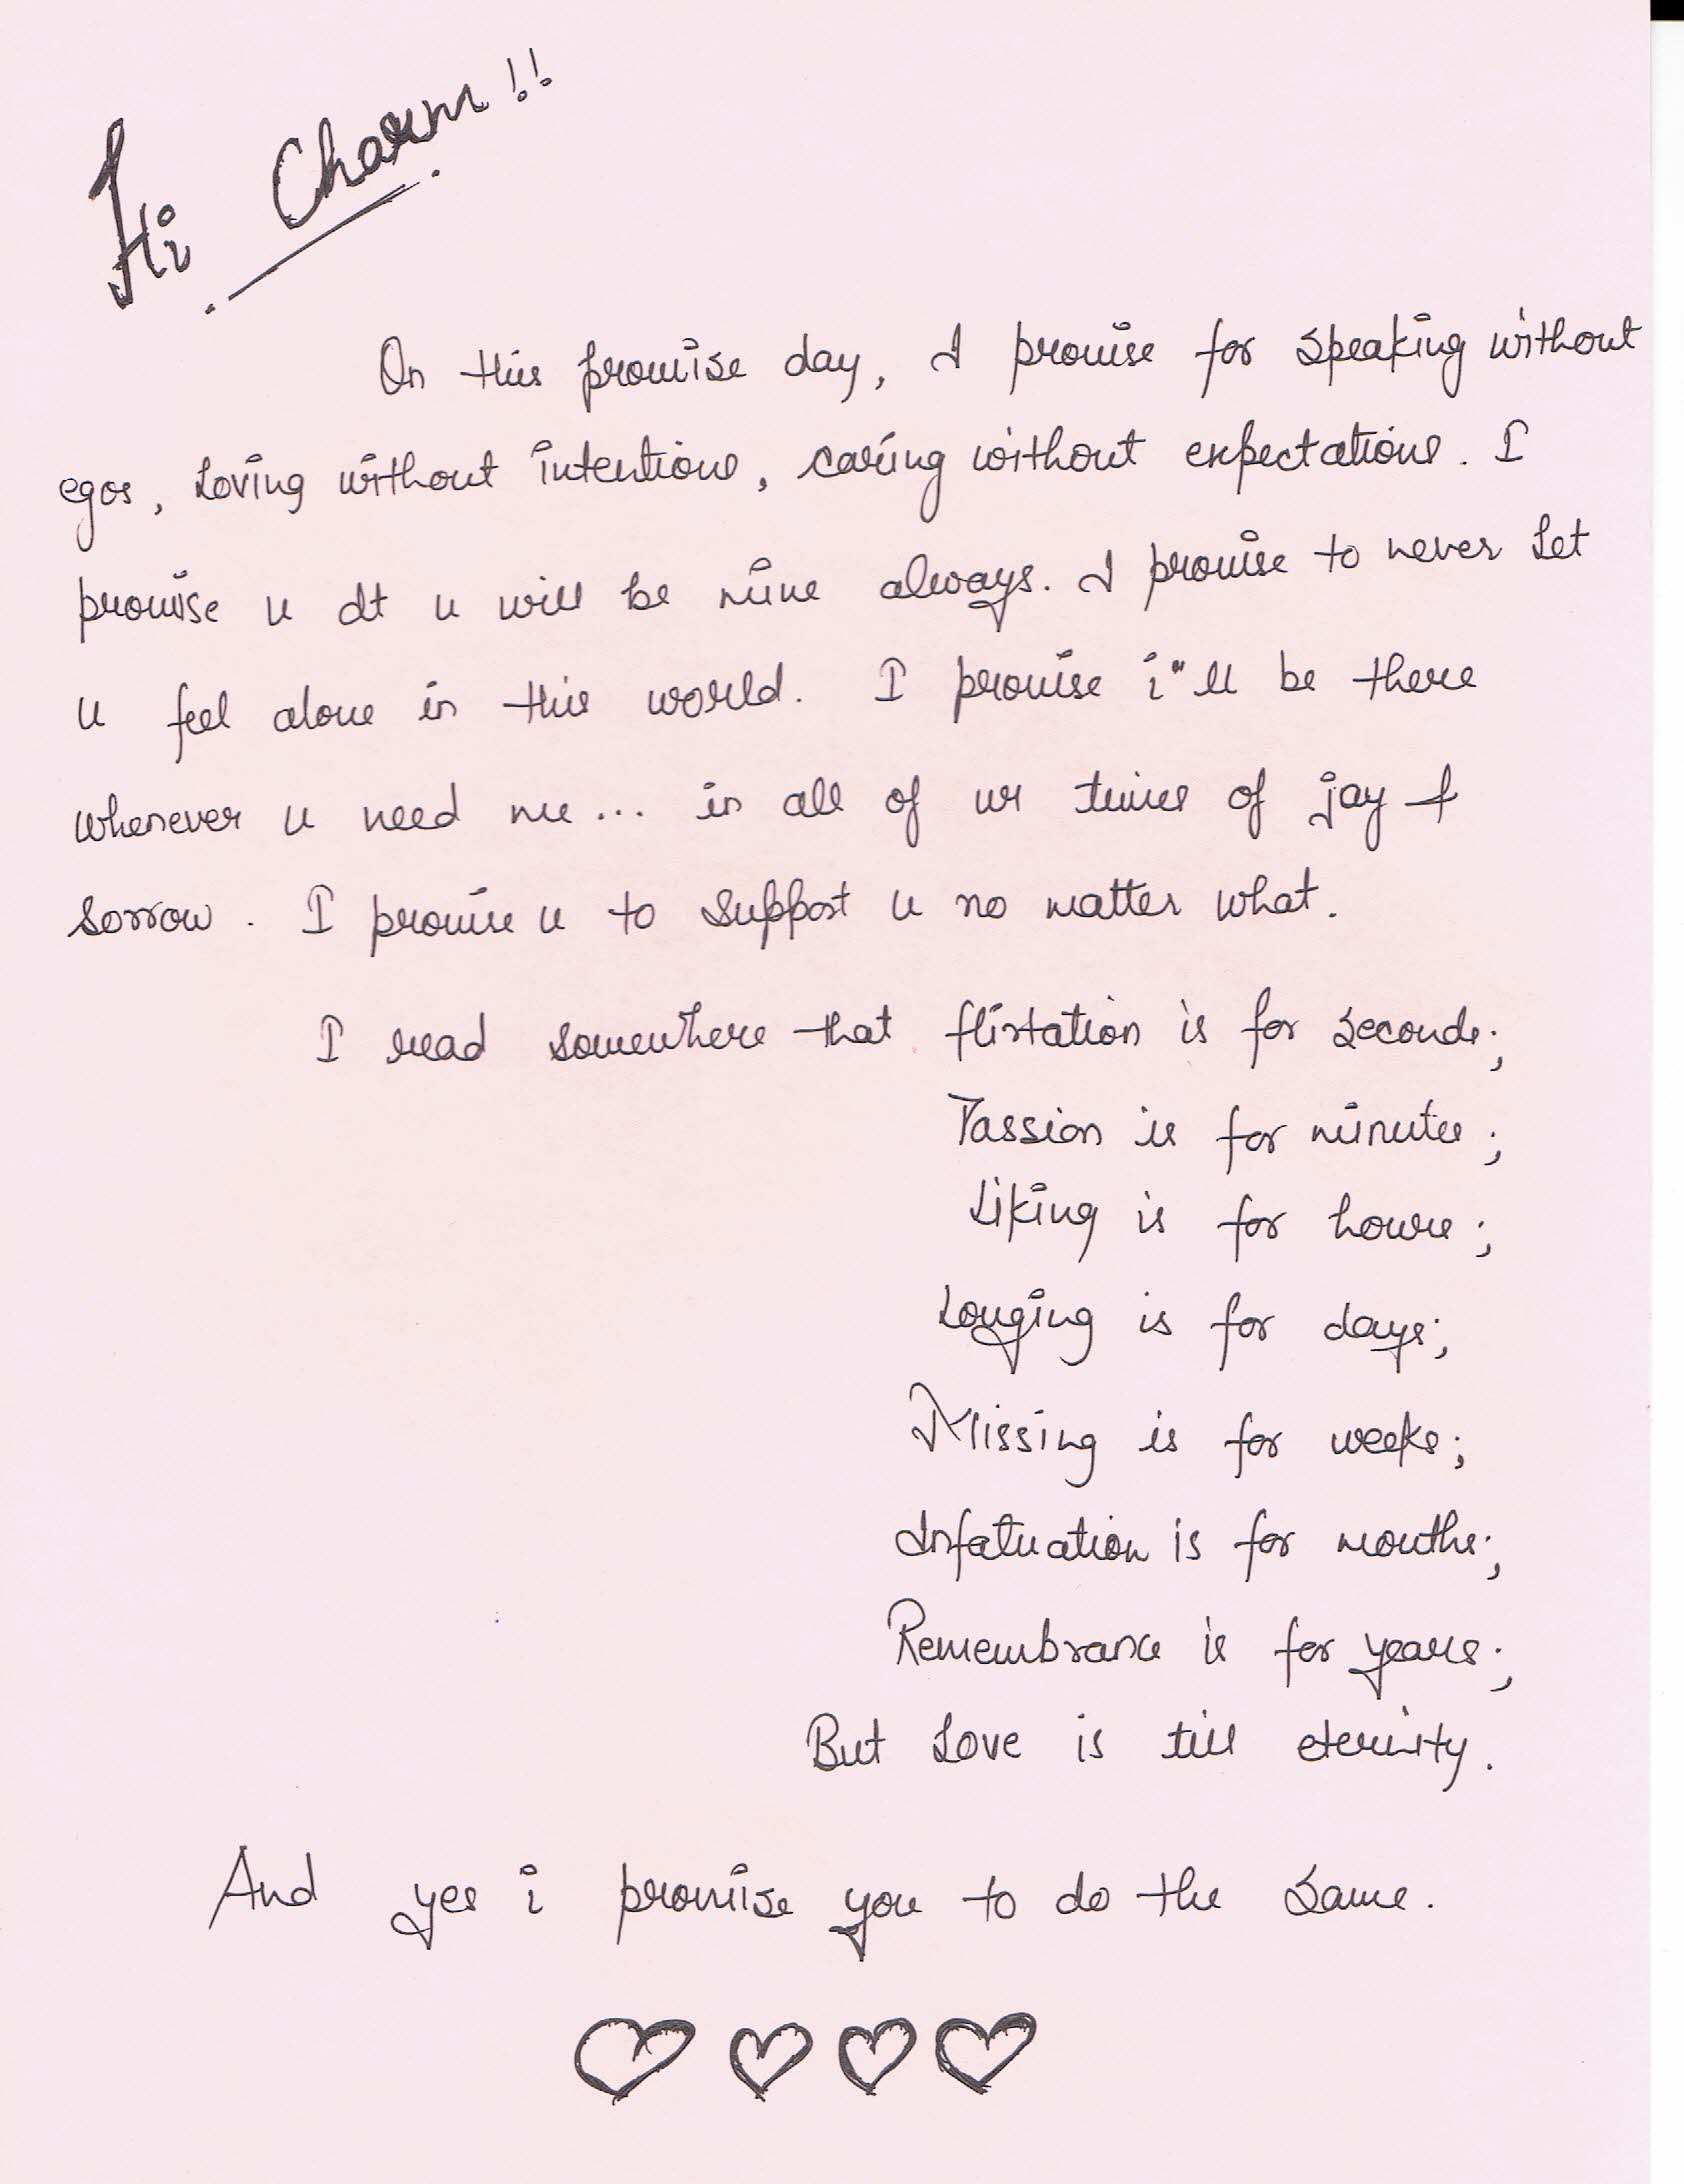 Hi Charm!!
On this promise day, I promise for speaking without
egos, Loving without intentions, caring without expectations. I
promise u dt u will be mine always. I promise to never let
u feel alone in this world. I promise i"ll be there
whenever u need me... in all of ur times of joy &
sorrow. I promise u to support u no matter what.
I read somewhere that flirtation is for seconds;
Passion is for minutes;
Liking is for hours;
Longing is for days;
Missing is for weeks;
Infatuation is for months;
Remembrance is for years;
But Love is till eternity.
And yes i promise you to do the same.